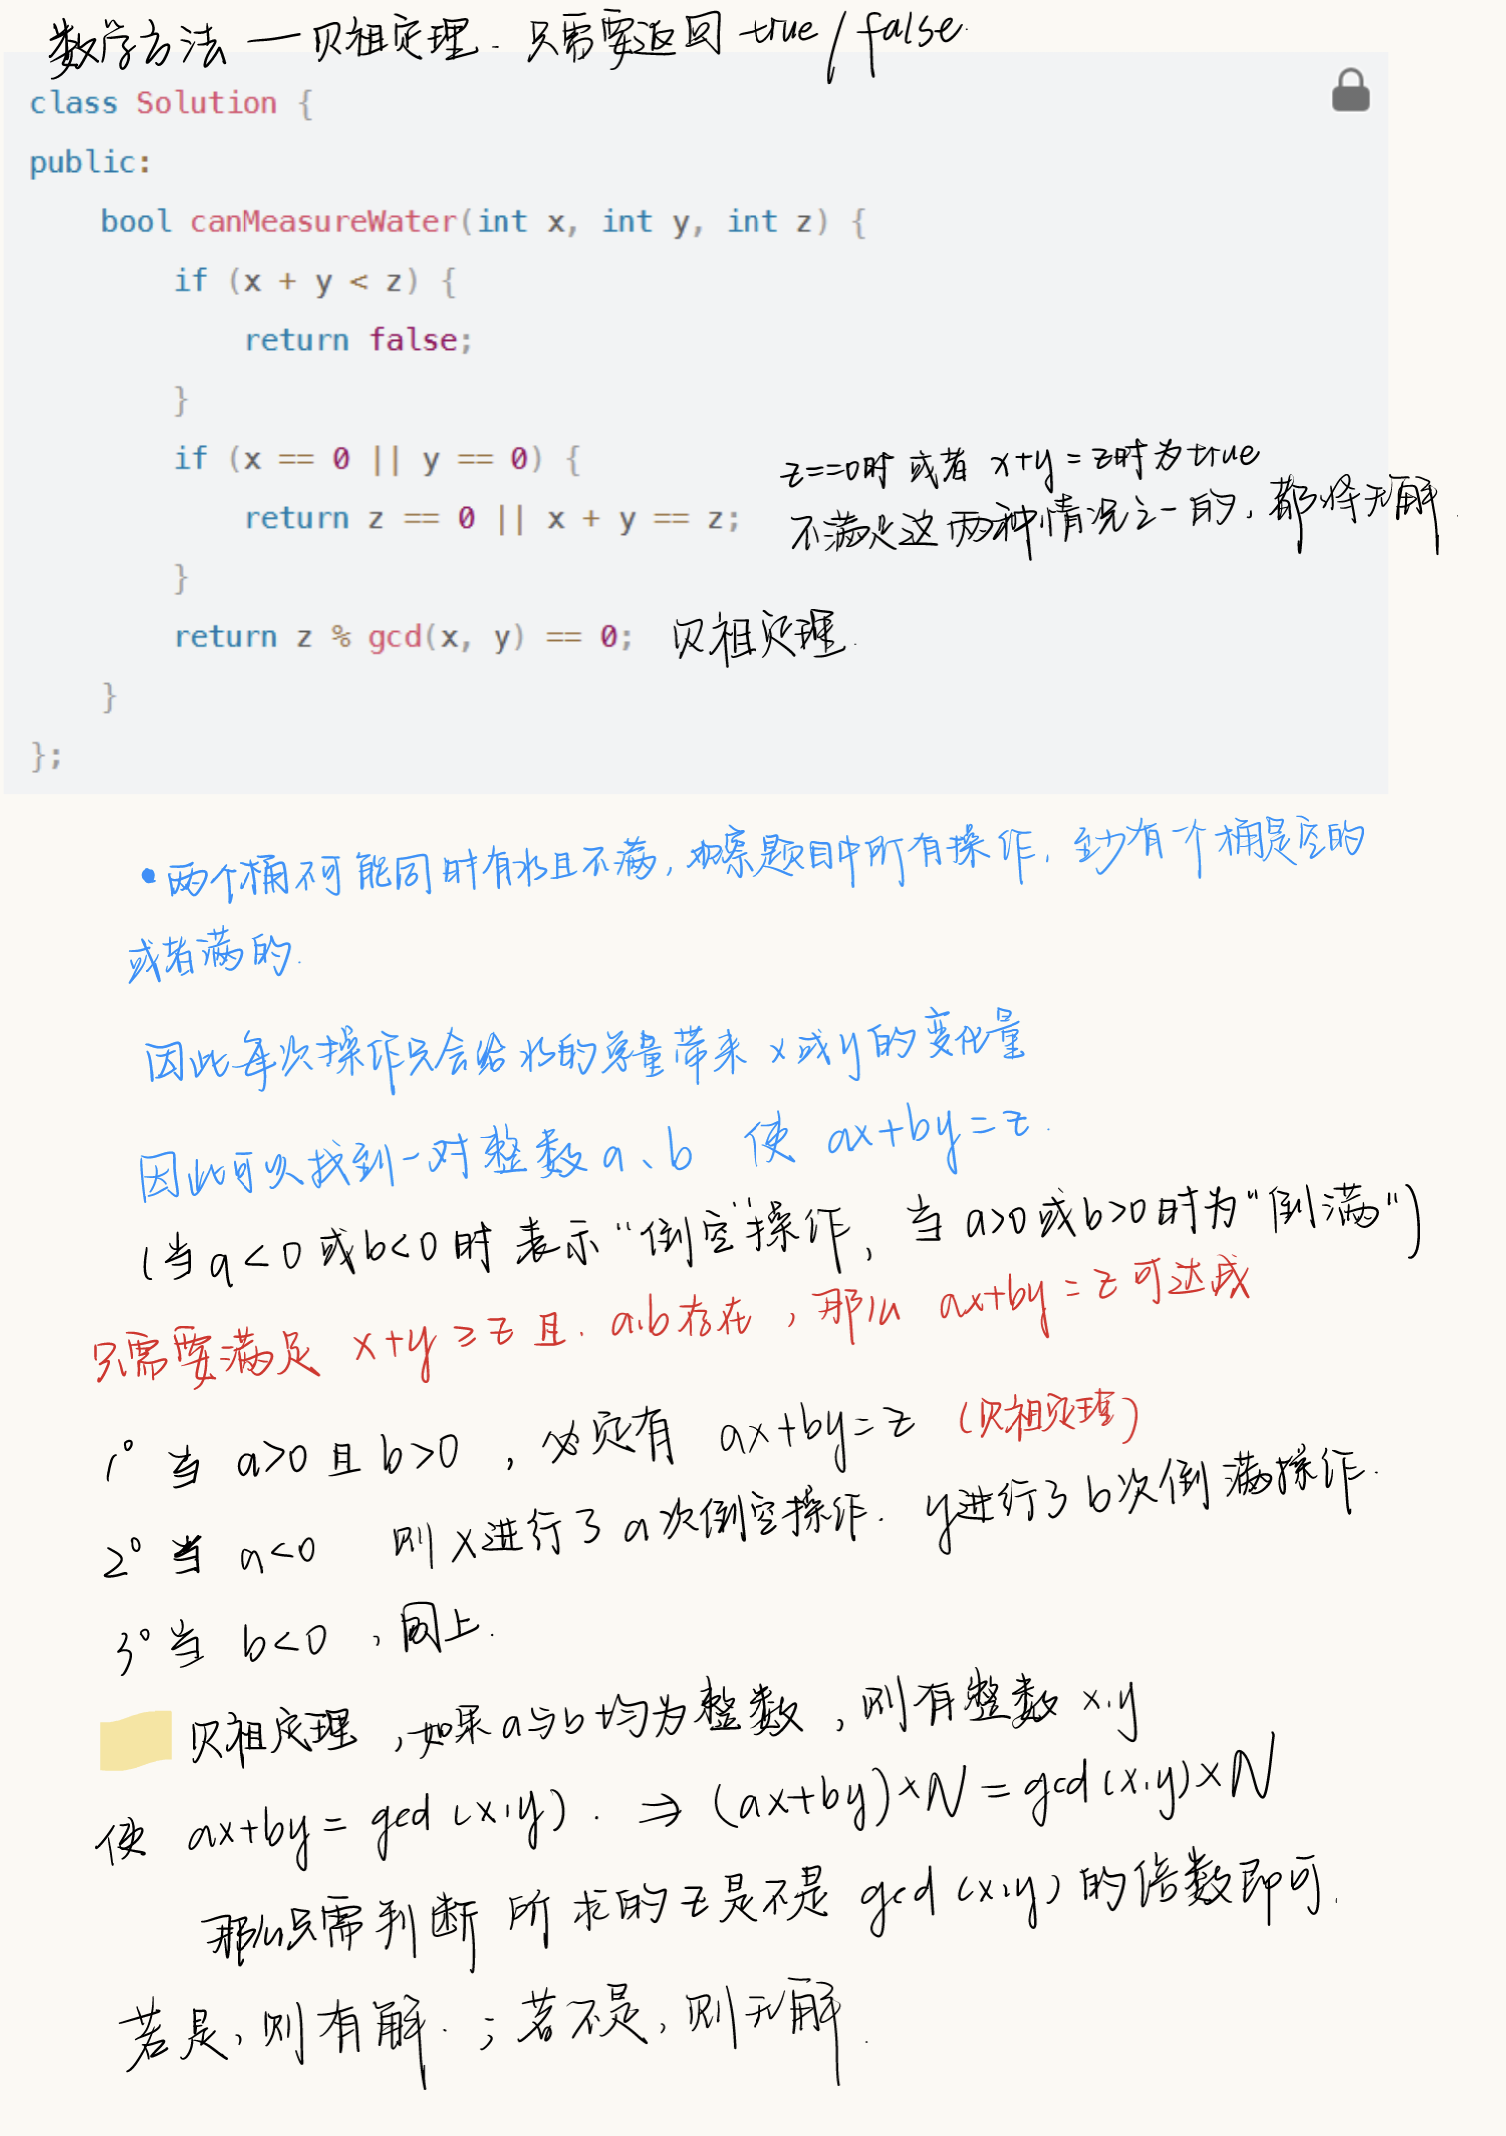 数学方法 — 贝祖定理. 只需要返回 true / false.
class Solution {
public:
    bool canMeasureWater(int x, int y, int z) {
        if (x + y < z) {
            return false;
        }
        if (x == 0 || y == 0) {
z==0时 或者 x+y = z时为true
            return z == 0 || x + y == z;
不满足这两种情况之一的, 都将无解.
        }
        return z % gcd(x, y) == 0; 贝祖定理.
    }
};
• 两个桶不可能同时有水且不满, 观察题目中所有操作, 至少有一个桶是空的
或者满的.
因此每次操作只会给水的总量带来 x 或 y 的变化量
因此可以找到一对整数 a、b 使 ax+by=z.
(当 a<0 或 b<0 时 表示 "倒空" 操作, 当 a>0 或 b>0 时为 "倒满")
只需要满足 x+y ≥ z 且. a.b 存在, 那么 ax+by = z 可达成
1° 当 a>0 且 b>0 , 必定有 ax+by=z (贝祖定理)
2° 当 a<0 则 x 进行了 a 次倒空操作. y 进行了 b 次倒满操作.
3° 当 b<0 , 同上.
贝祖定理 , 如果 a 与 b 均为整数 , 则有整数 x.y
使 ax+by = gcd (x,y) . ⇒ (ax+by)×N = gcd (x,y)×N
那么只需判断 所求的 z 是不是 gcd (x,y) 的倍数即可.
若是, 则有解. ; 若不是, 则无解.